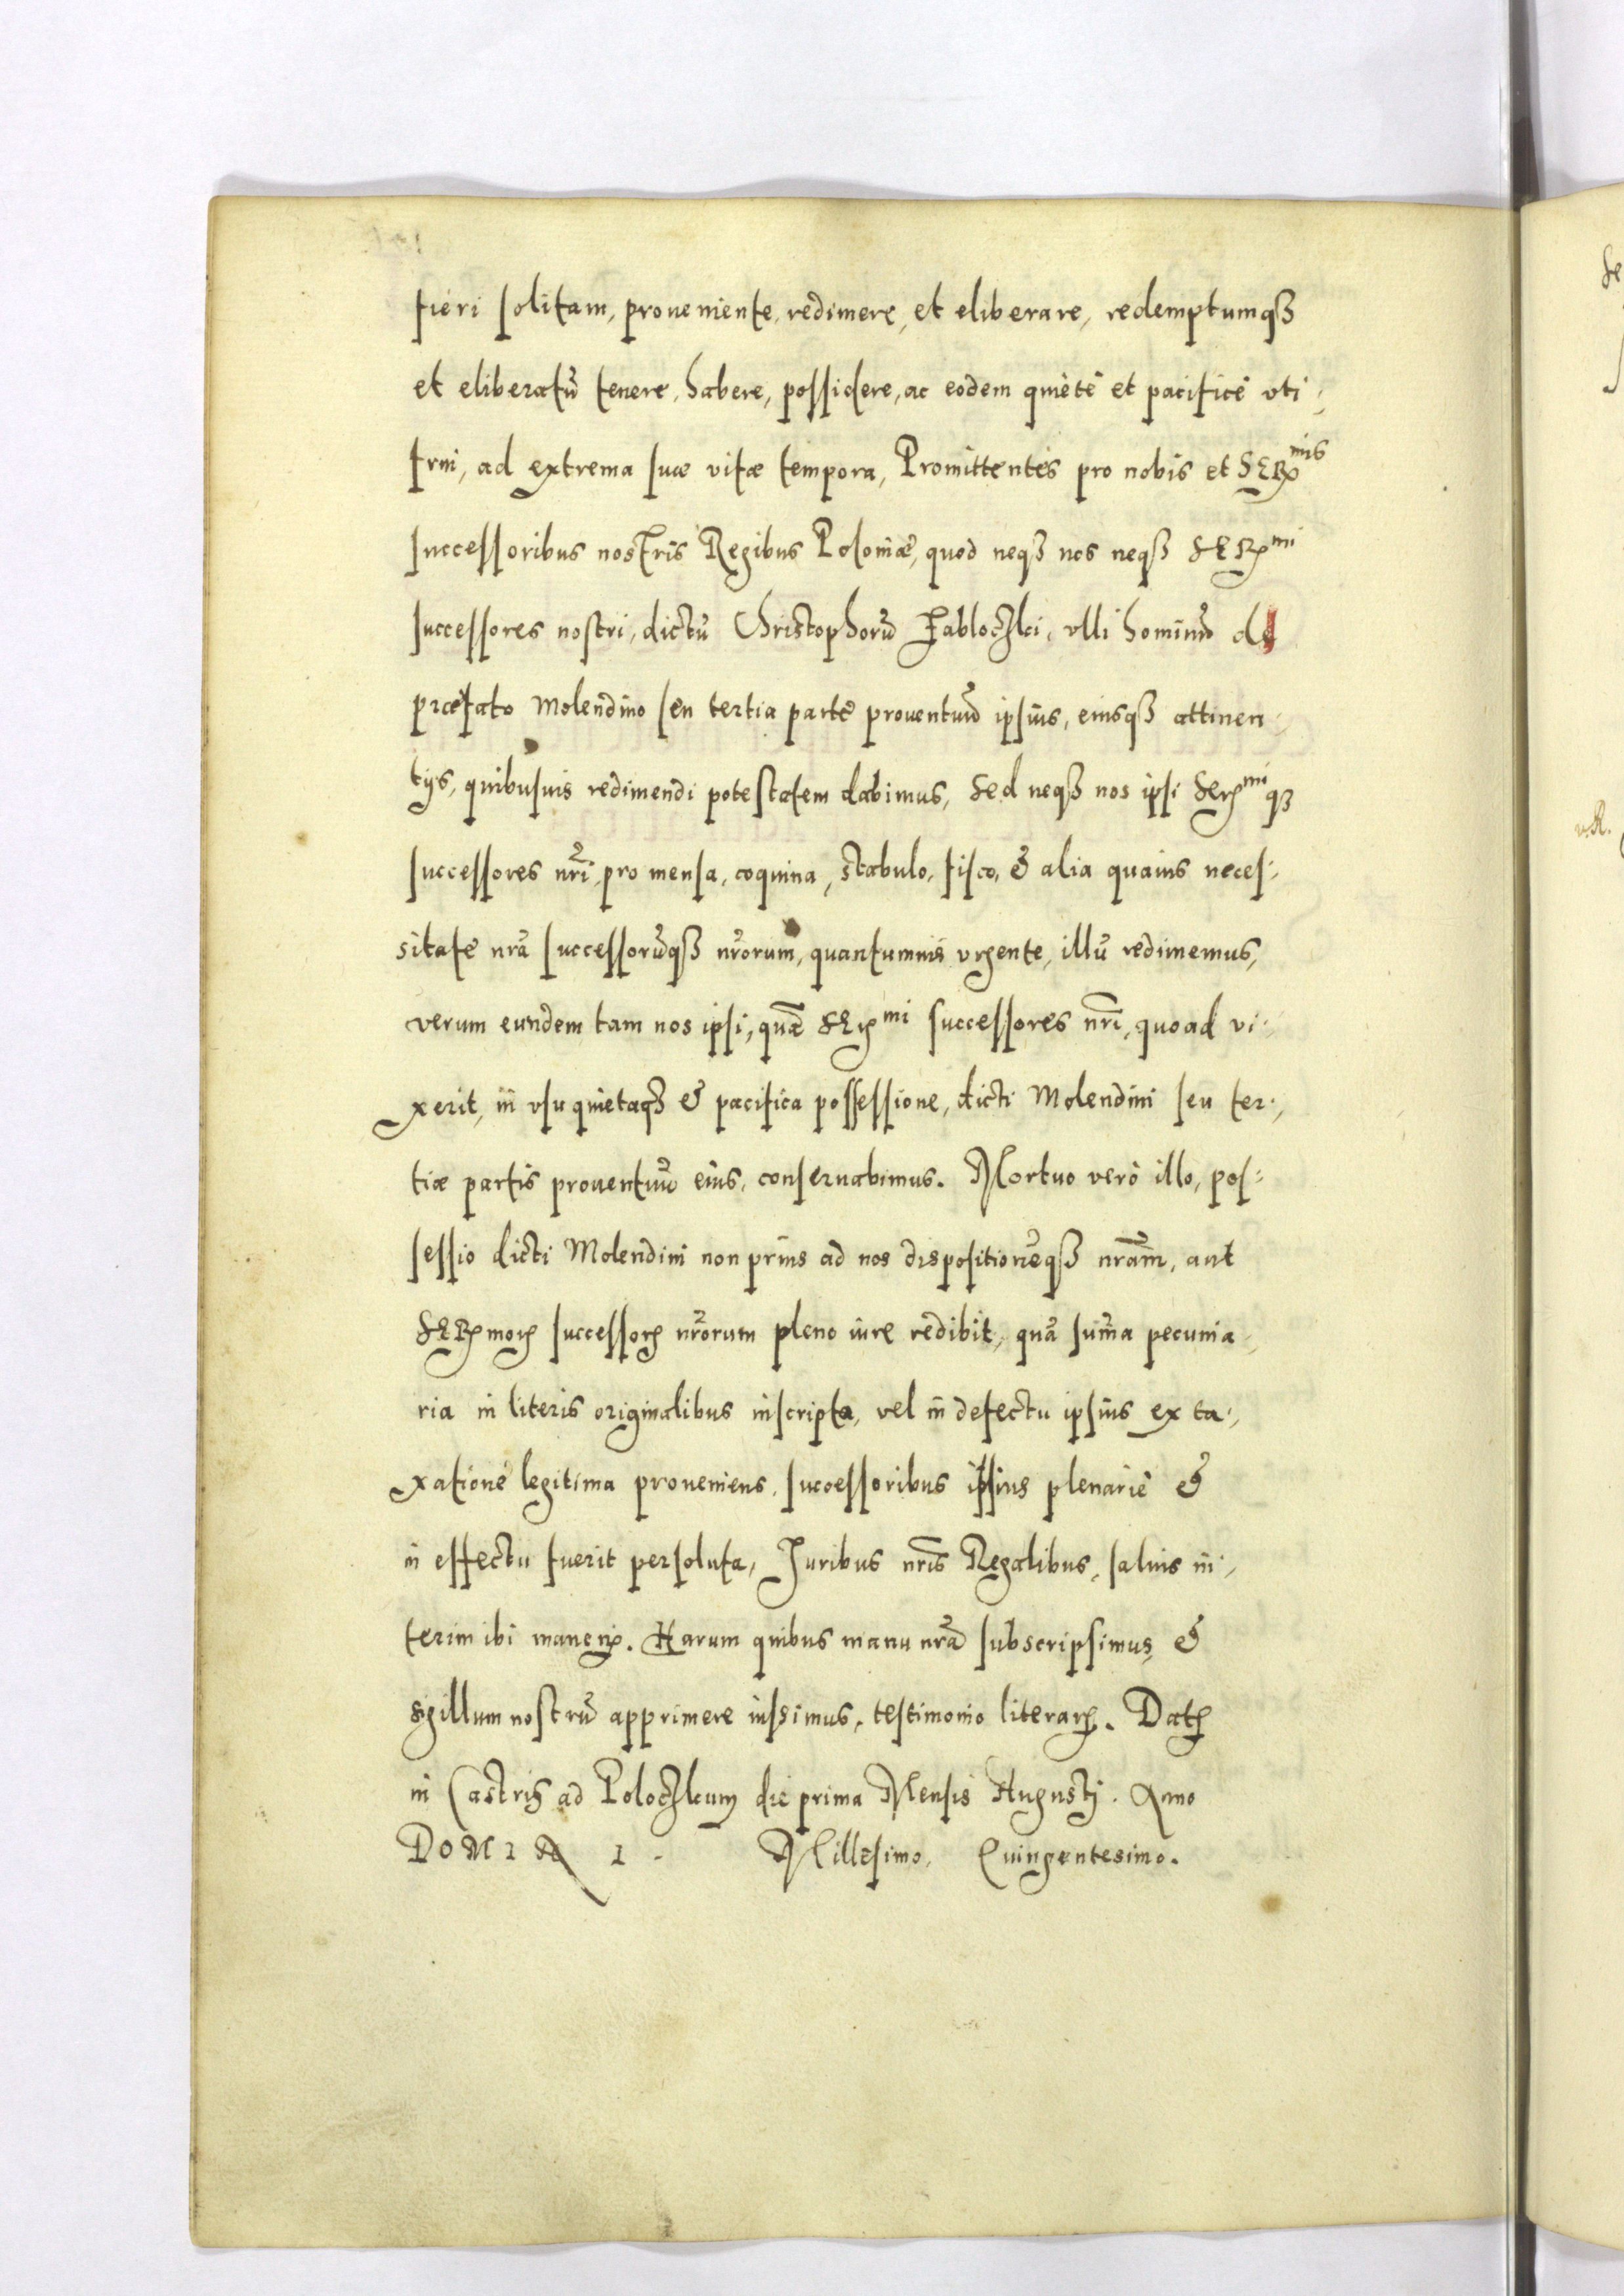 fieri solitam, proueniente, redimere, et eliberare, redemptumqꝫ
et eliberatū tenere, habere, possidere, ac eodem quietè et pacificè vti-
frui, ad extrema suæ vitæ tempora, Promittentes pro nobis et SERmis
successoribus nostris Regibus Poloniæ, quod neqꝫ nos neqꝫ SERmi
successores nostri, dictū Christophorū Jabloczki, vlli hominū de
præfato Molendino seu tertia parte prouentuū ipsius, eiusqꝫ attinen-
tijs, quibusuis redimendi potestatem dabimus, Sed neqꝫ nos ipsi Sermiqꝫ
successores nr̄i, pro mensa, coquina, stabulo, fisco, & alia quauis neces-
sitate nr̄a successorūqꝫ nr̄orum, quantumuis vrgente, illū redimemus,
verum eundem tam nos ipsi, quā SERmi successores nr̄i, quoad vi-
xerit, in vsu quietaqꝫ & pacifica possessione, dicti Molendini seu ter-
tiæ partis prouentuū eius, conseruabimus. Mortuo verò illo, pos-
sessio dicti Molendini non prius ad nos dispositionēqꝫ nr̄am, aut
SERmoꝝ successoꝝ nr̄orum pleno iure redibit, quā sum̄a pecunia-
ria in literis originalibus inscripta, vel in defectu ipsius ex ta-
xatione legitima proueniens, successoribus ipsius plenariè &
in effectu fuerit persoluta, Juribus nr̄is Regalibus, saluis in-
terim ibi maneñ. Harum quibus manu nr̄a subscripsimus, &
sigillum nostrū apprimere iussimus, testimonio literaꝝ. Datꝭ
in Castris ad Poloczkum die prima Mensis Augusti. Anno
DOMINI. Millesimo, Quingentesimo.